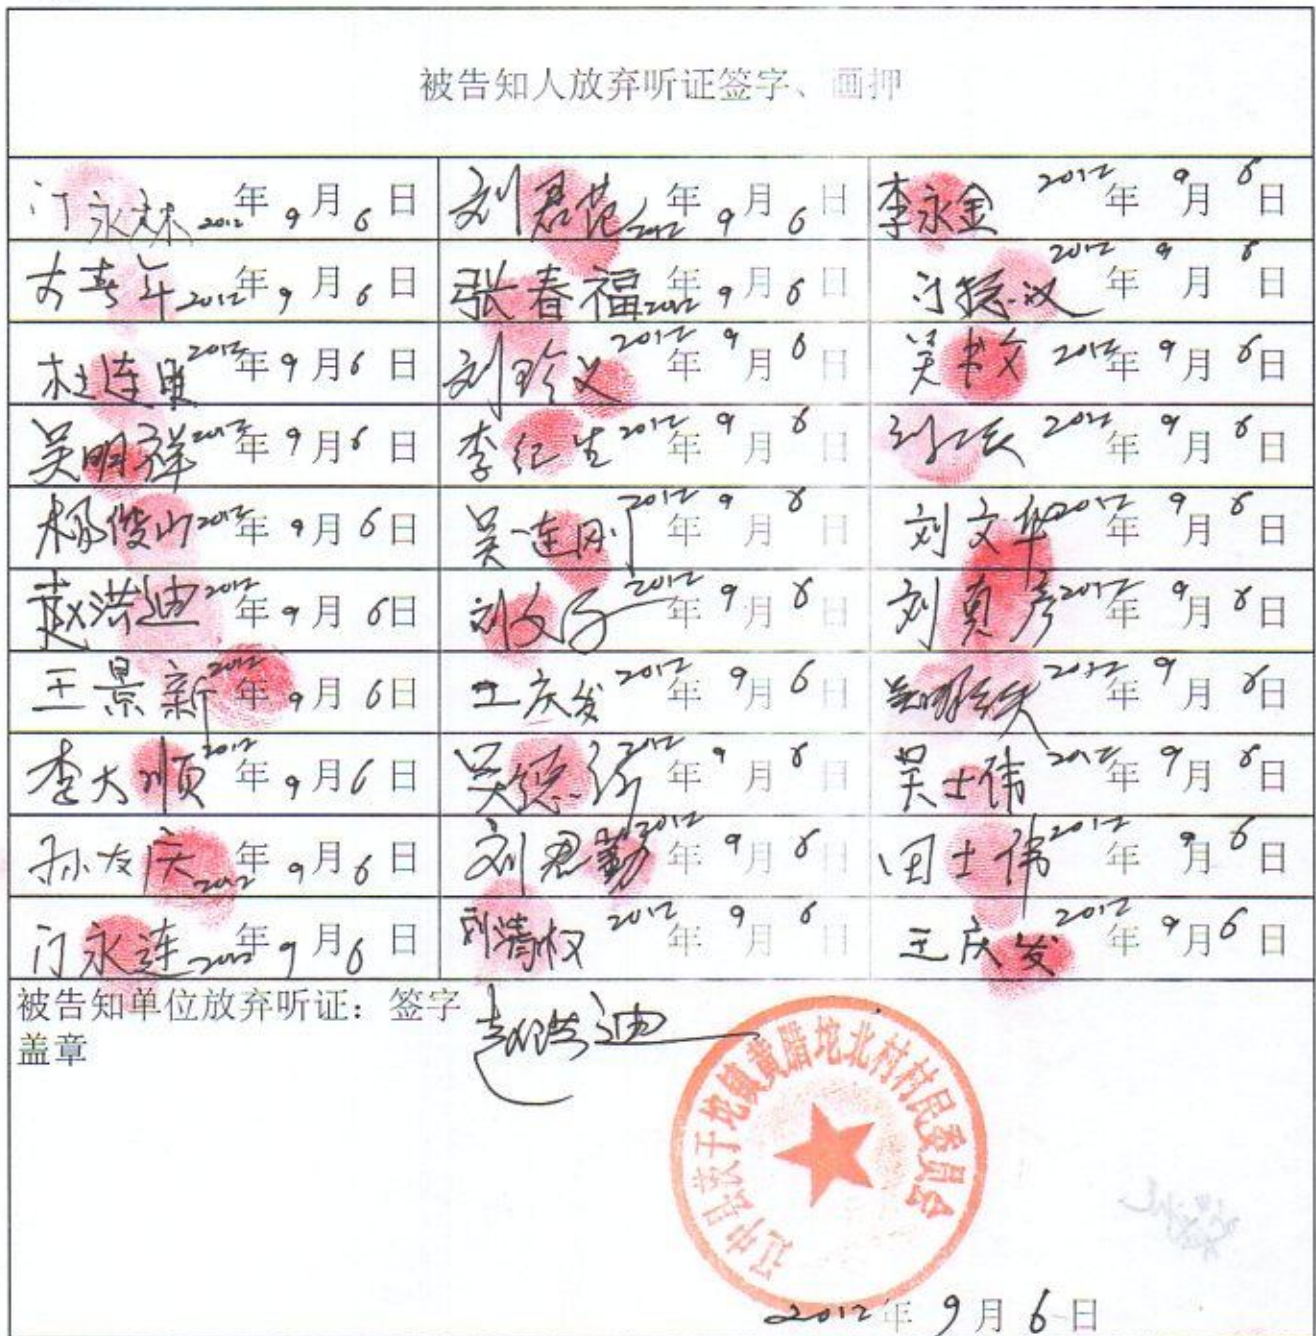 被告知人放弃听证签字、画押
门永林 2012年9月6日 刘君范 2012年9月6日 李永金 2012年9月6日
2012年9月6日 张春福 2012年9月6日 门德汉 2012年9月6日
杜连 2012年9月6日 刘珍义 2012年9月6日 吴书文 2012年9月6日
吴明祥 2012年9月6日 李纪生 2012年9月6日 2012年9月6日
杨俊山 2012年9月6日 吴连刚 2012年9月6日 刘文华 2012年9月6日
赵洪迪 2012年9月6日 刘文 2012年9月6日 刘 彦 2012年9月6日
王景新 2012年9月6日 王庆发 2012年9月6日 吴 2012年9月6日
李大顺 2012年9月6日 吴德 2012年9月6日 吴士伟 2012年9月6日
孙友庆 2012年9月6日 刘君勤 2012年9月6日 田士伟 2012年9月6日
门永连 2012年9月6日 刘清权 2012年9月6日 王庆发 2012年9月6日
被告知单位放弃听证：签字 赵洪迪
盖章
辽中县茨于坨镇黄腊坨北村村民委员会
2012年9月6日